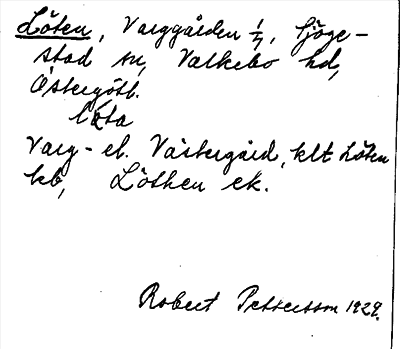 Löten, Varggården 1/7, Sjöge-
stad sn, Valkebo hd,
Östergötl.
löta
Varg- el. Västergård, klt Löten
kb, Löthen ek.
Robert Pettersson 1929.